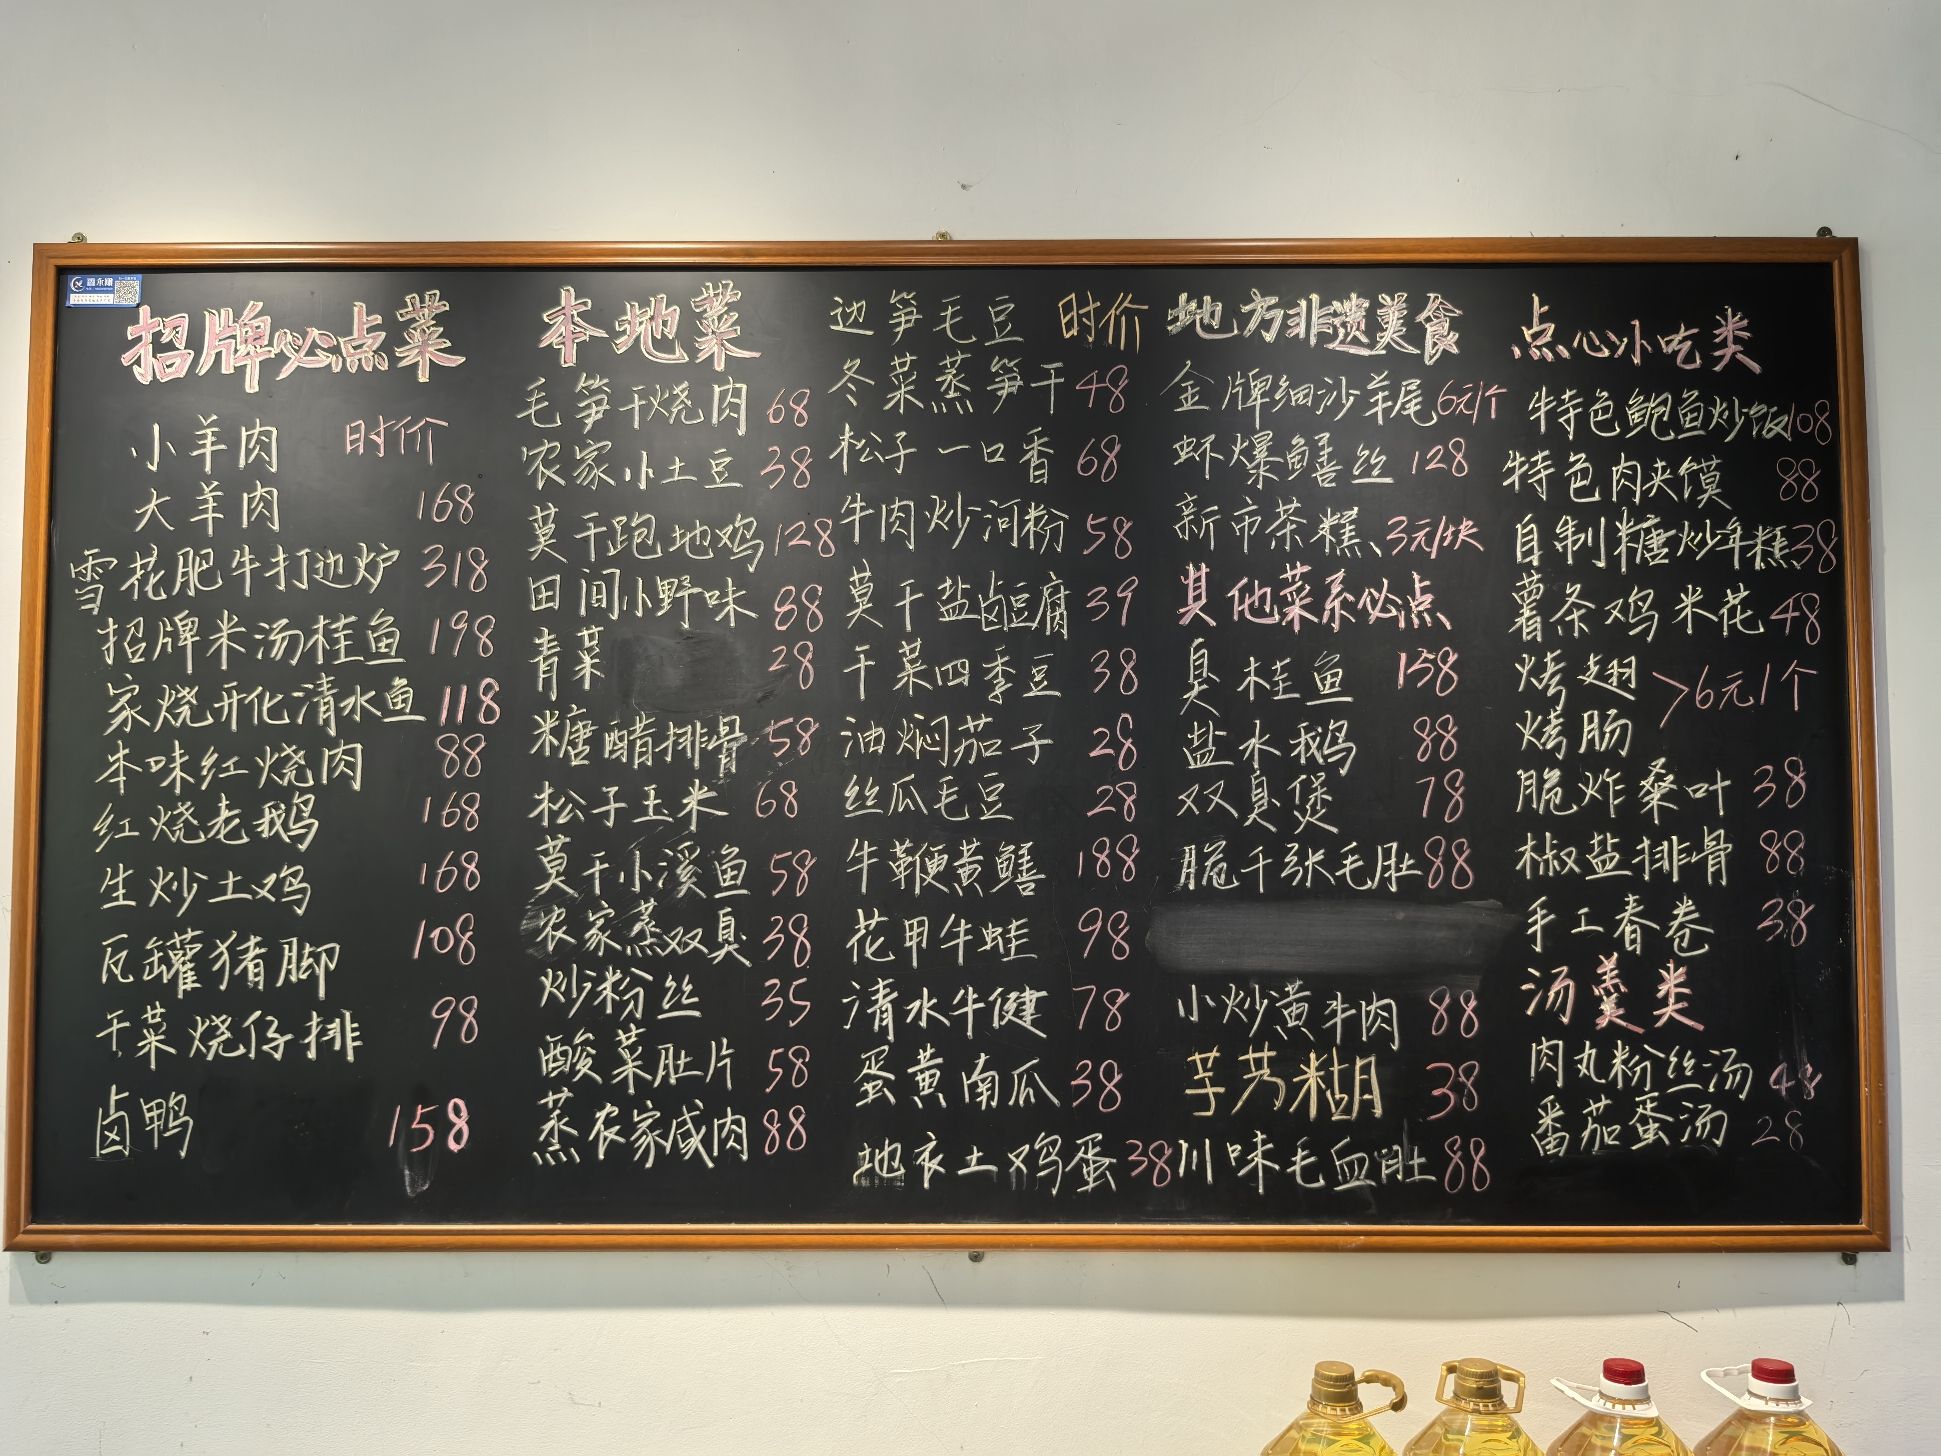 招牌必点菜
小羊肉 时价
大羊肉 168
雪花肥牛打边炉 318
招牌米汤桂鱼 198
家烧开化清水鱼 118
本味红烧肉 88
红烧老鹅 168
生炒土鸡 168
瓦罐猪脚 108
干菜烧仔排 98
卤鸭 158
本地菜
毛笋干烧肉 68
农家小土豆 38
莫干跑地鸡 128
田间小野味 88
青菜 28
糖醋排骨 58
松子玉米 68
莫干小溪鱼 58
农家蒸双臭 38
炒粉丝 35
酸菜肚片 58
蒸农家咸肉 88
边笋毛豆 时价
冬菜蒸笋干 48
松子一口香 68
牛肉炒河粉 58
莫干盐卤豆腐 39
干菜四季豆 38
油焖茄子 28
丝瓜毛豆 28
牛鞭黄鳝 188
花甲牛蛙 98
清水牛健 78
蛋黄南瓜 38
地衣土鸡蛋 38
地方非遗美食
金牌细沙羊尾 6元/个
虾爆鳝丝 128
新市茶糕、3元/块
其他菜系必点
臭桂鱼 158
盐水鹅 88
双臭煲 78
脆千张毛肚 88
小炒黄牛肉 88
芋艿糊 38
川味毛血肚 88
点心小吃类
特色鲍鱼炒饭 108
特色肉夹馍 88
自制糖炒年糕 38
薯条鸡米花 48
烤翅 >6元1个
烤肠
脆炸桑叶 38
椒盐排骨 88
手工春卷 38
汤羹类
肉丸粉丝汤 48
番茄蛋汤 28